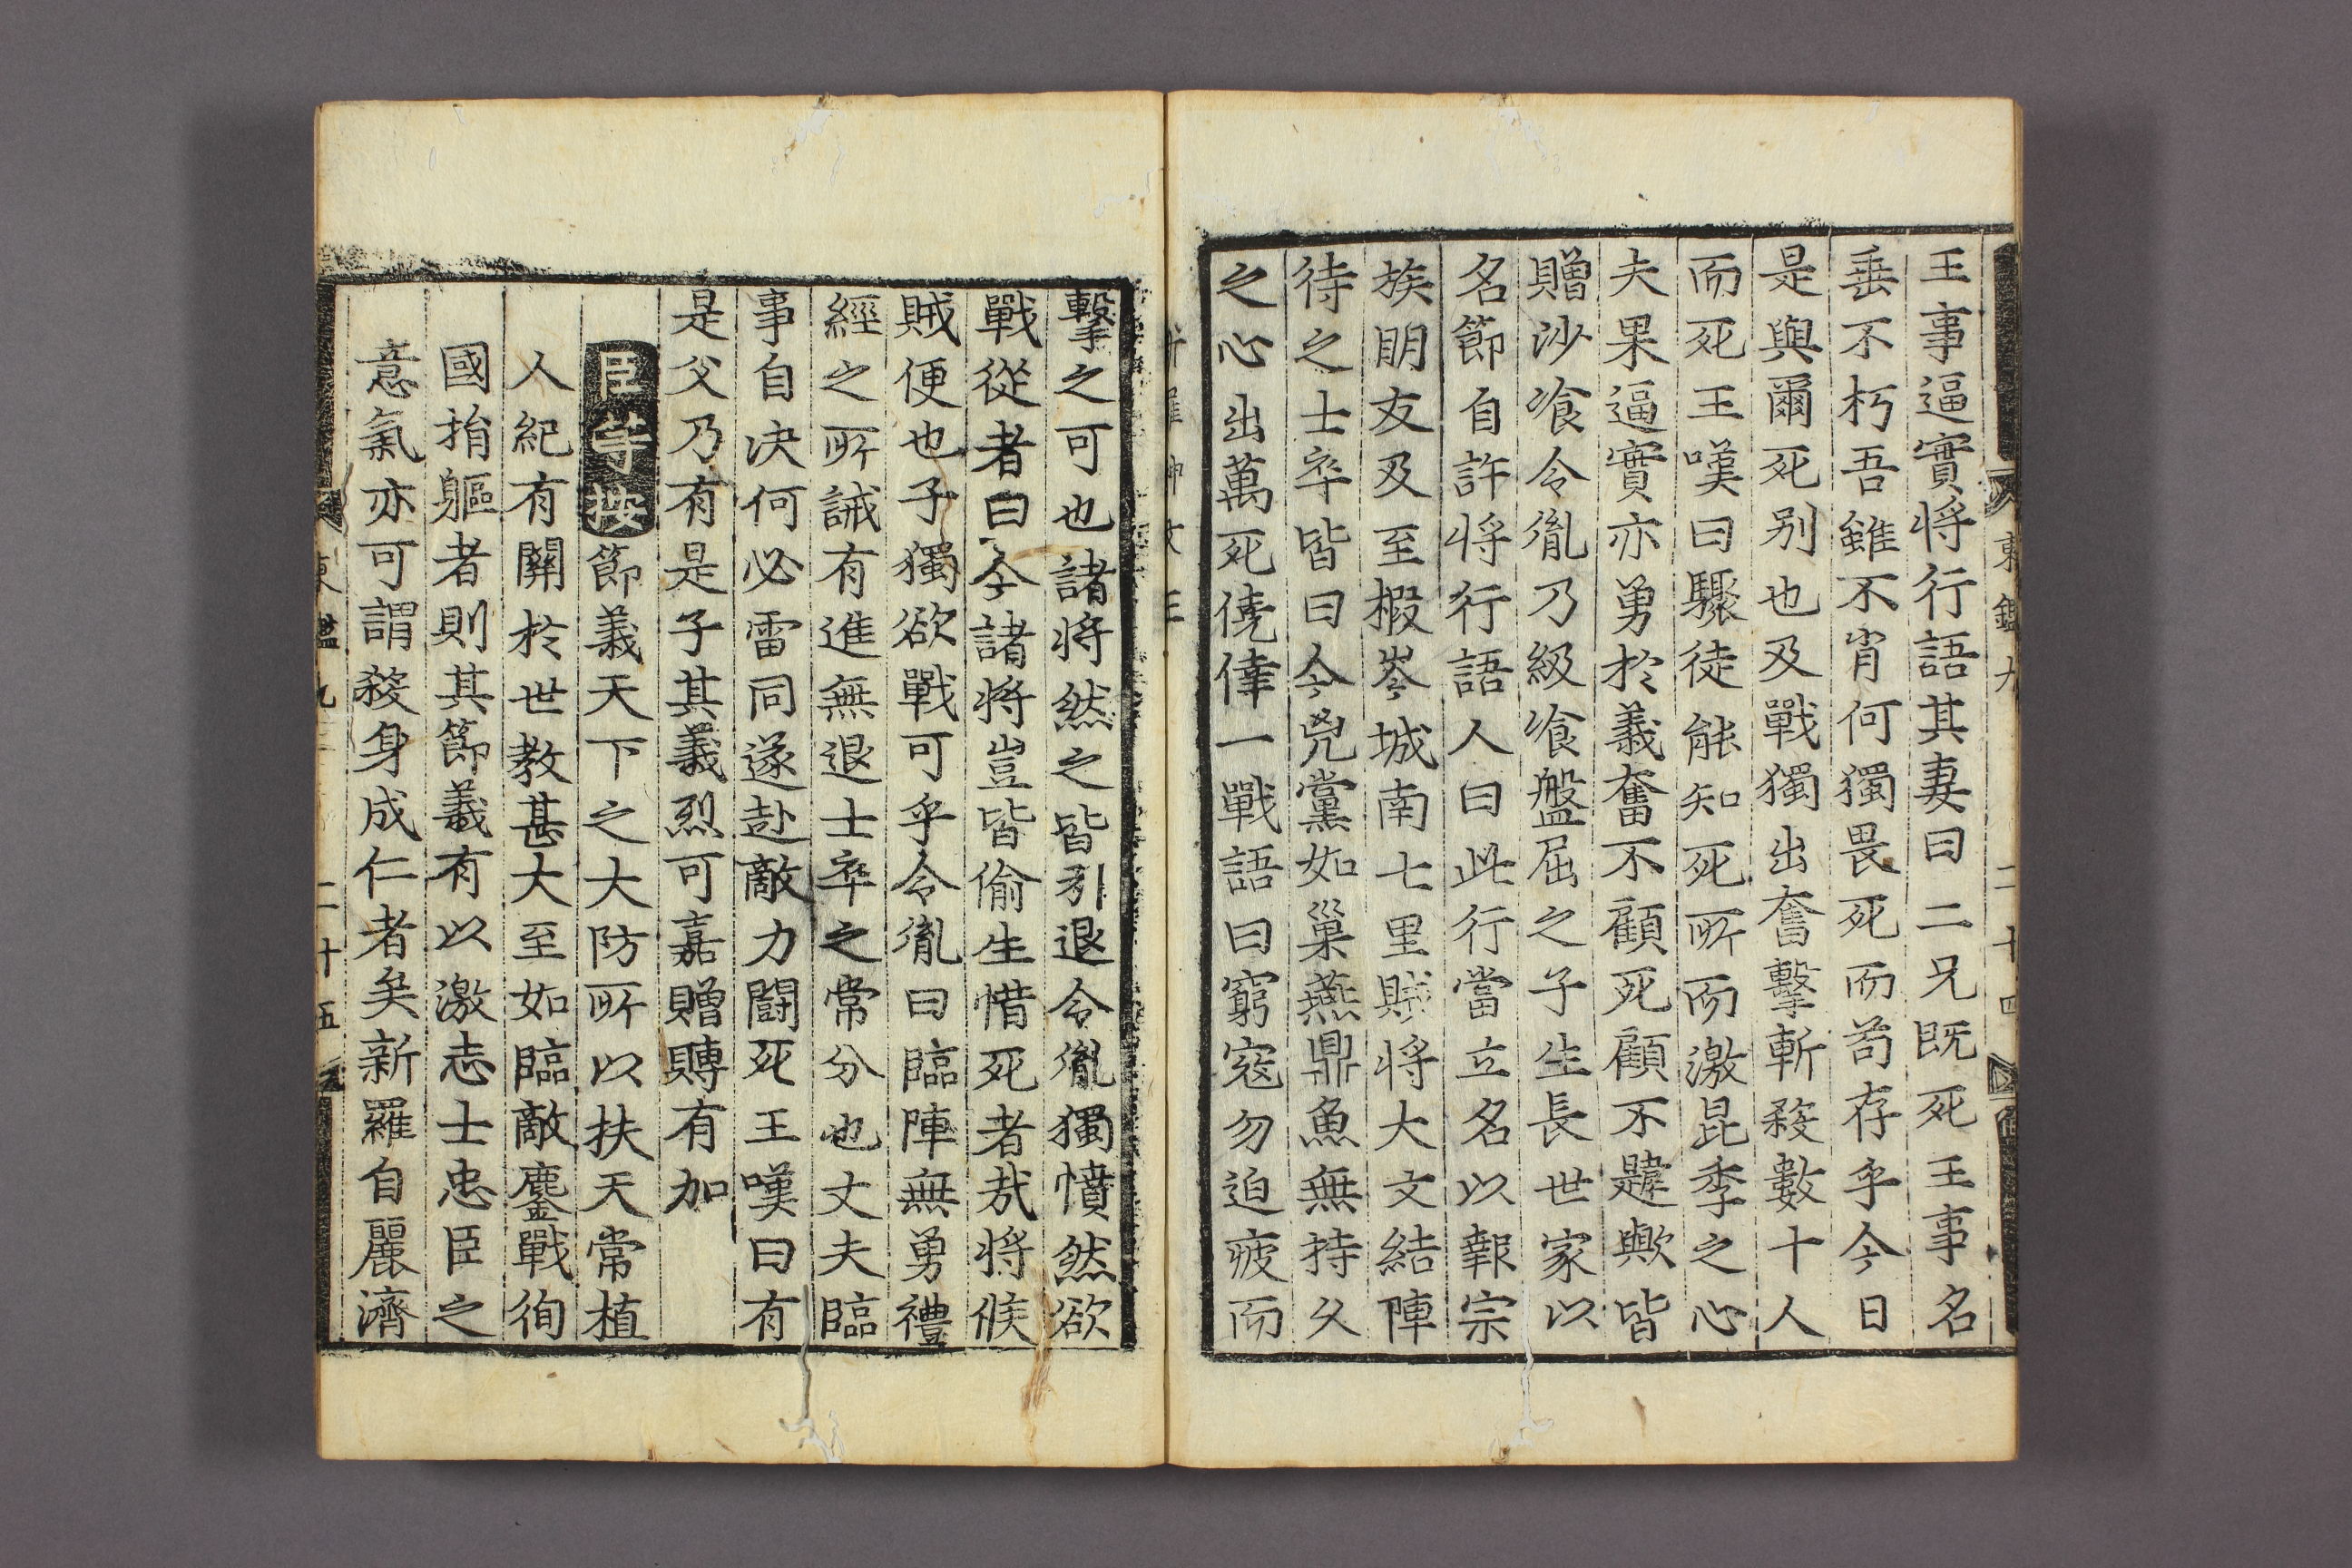 東鑑九
二十四
王事逼實將行語其妻曰二兄既死王事名
垂不朽吾雖不肖何獨畏死而苟存乎今日
是與爾死別也及戰獨出奮擊斬殺數十人
而死王嘆曰驟徒能知死所而激昆季之心
夫果逼實亦勇於義奮不顧死顧不韙歟皆
贈沙飡令胤乃級飡盤屈之子生長世家以
名節自許將行語人曰此行當立名以報宗
族朋友及至椵岑城南七里賊將大文結陣
待之士卒皆曰今兇黨如巢燕鼎魚無持久
之心出萬死僥倖一戰語曰窮寇勿迫疲而
擊之可也諸將然之皆引退令胤獨憤然欲
戰從者曰今諸將豈皆偷生惜死者哉將候
賊便也子獨欲戰可乎令胤曰臨陣無勇禮
經之所誡有進無退士卒之常分也丈夫臨
事自决何必雷同遂赴敵力鬪死王嘆曰有
是父乃有是子其義烈可嘉贈賻有加
臣等按節義天下之大防所以扶天常植
人紀有關於世教甚大至如臨敵鏖戰徇
國捐軀者則其節義有以激志士忠臣之
意氣亦可謂殺身成仁者矣新羅自麗濟
東鑑九
二十五